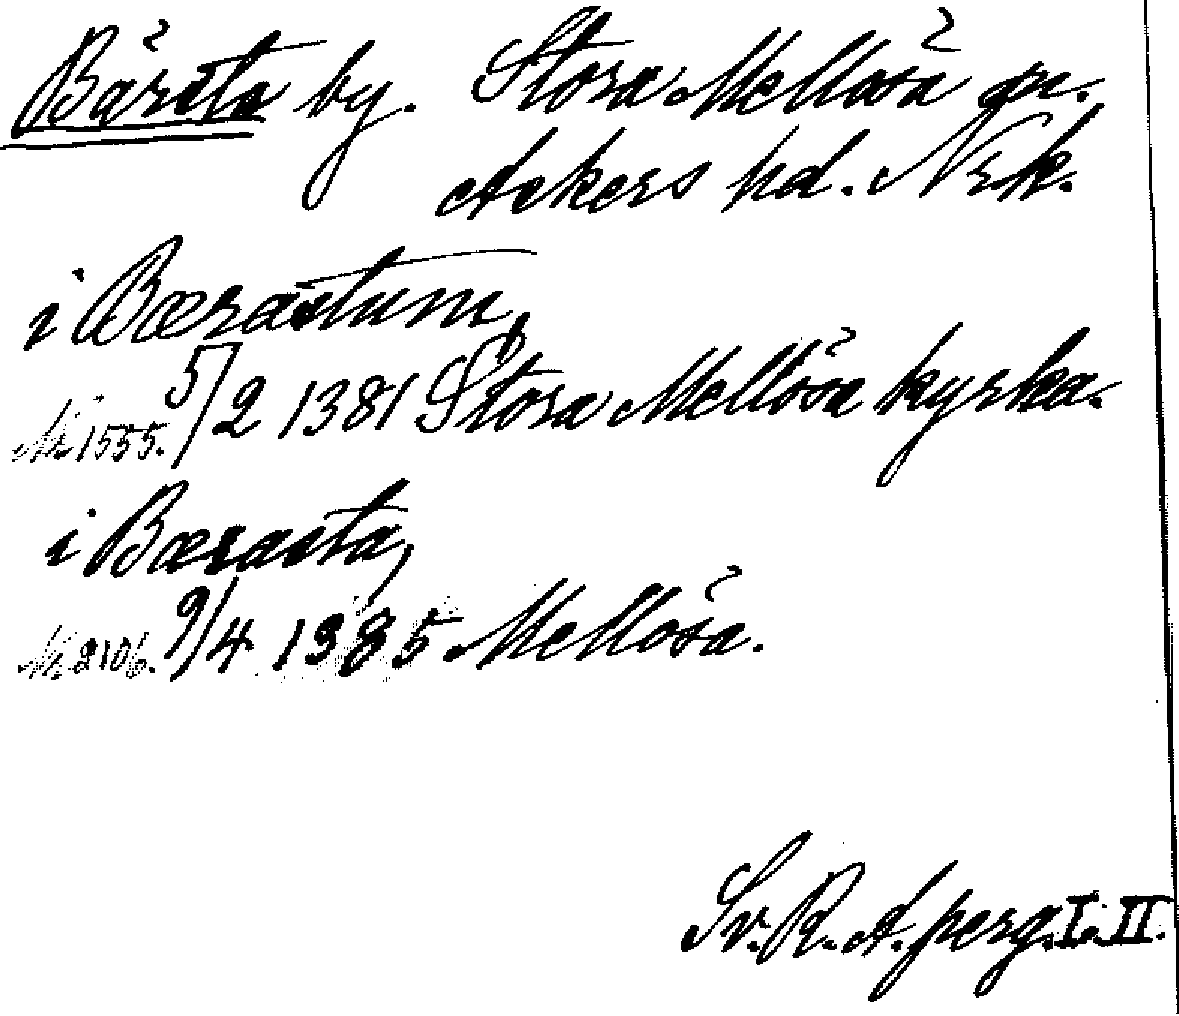 Bärsta by. Stora Mellösa sn.
Askers hd. Nrk.
i Bærastum,
Nr 1555. 5/2 1381 Stora Mellösa kyrka.
i Bærasta,
Nr 2106. 9/4 1385 Mellösa.
Sv. R. A. perg. I. II.